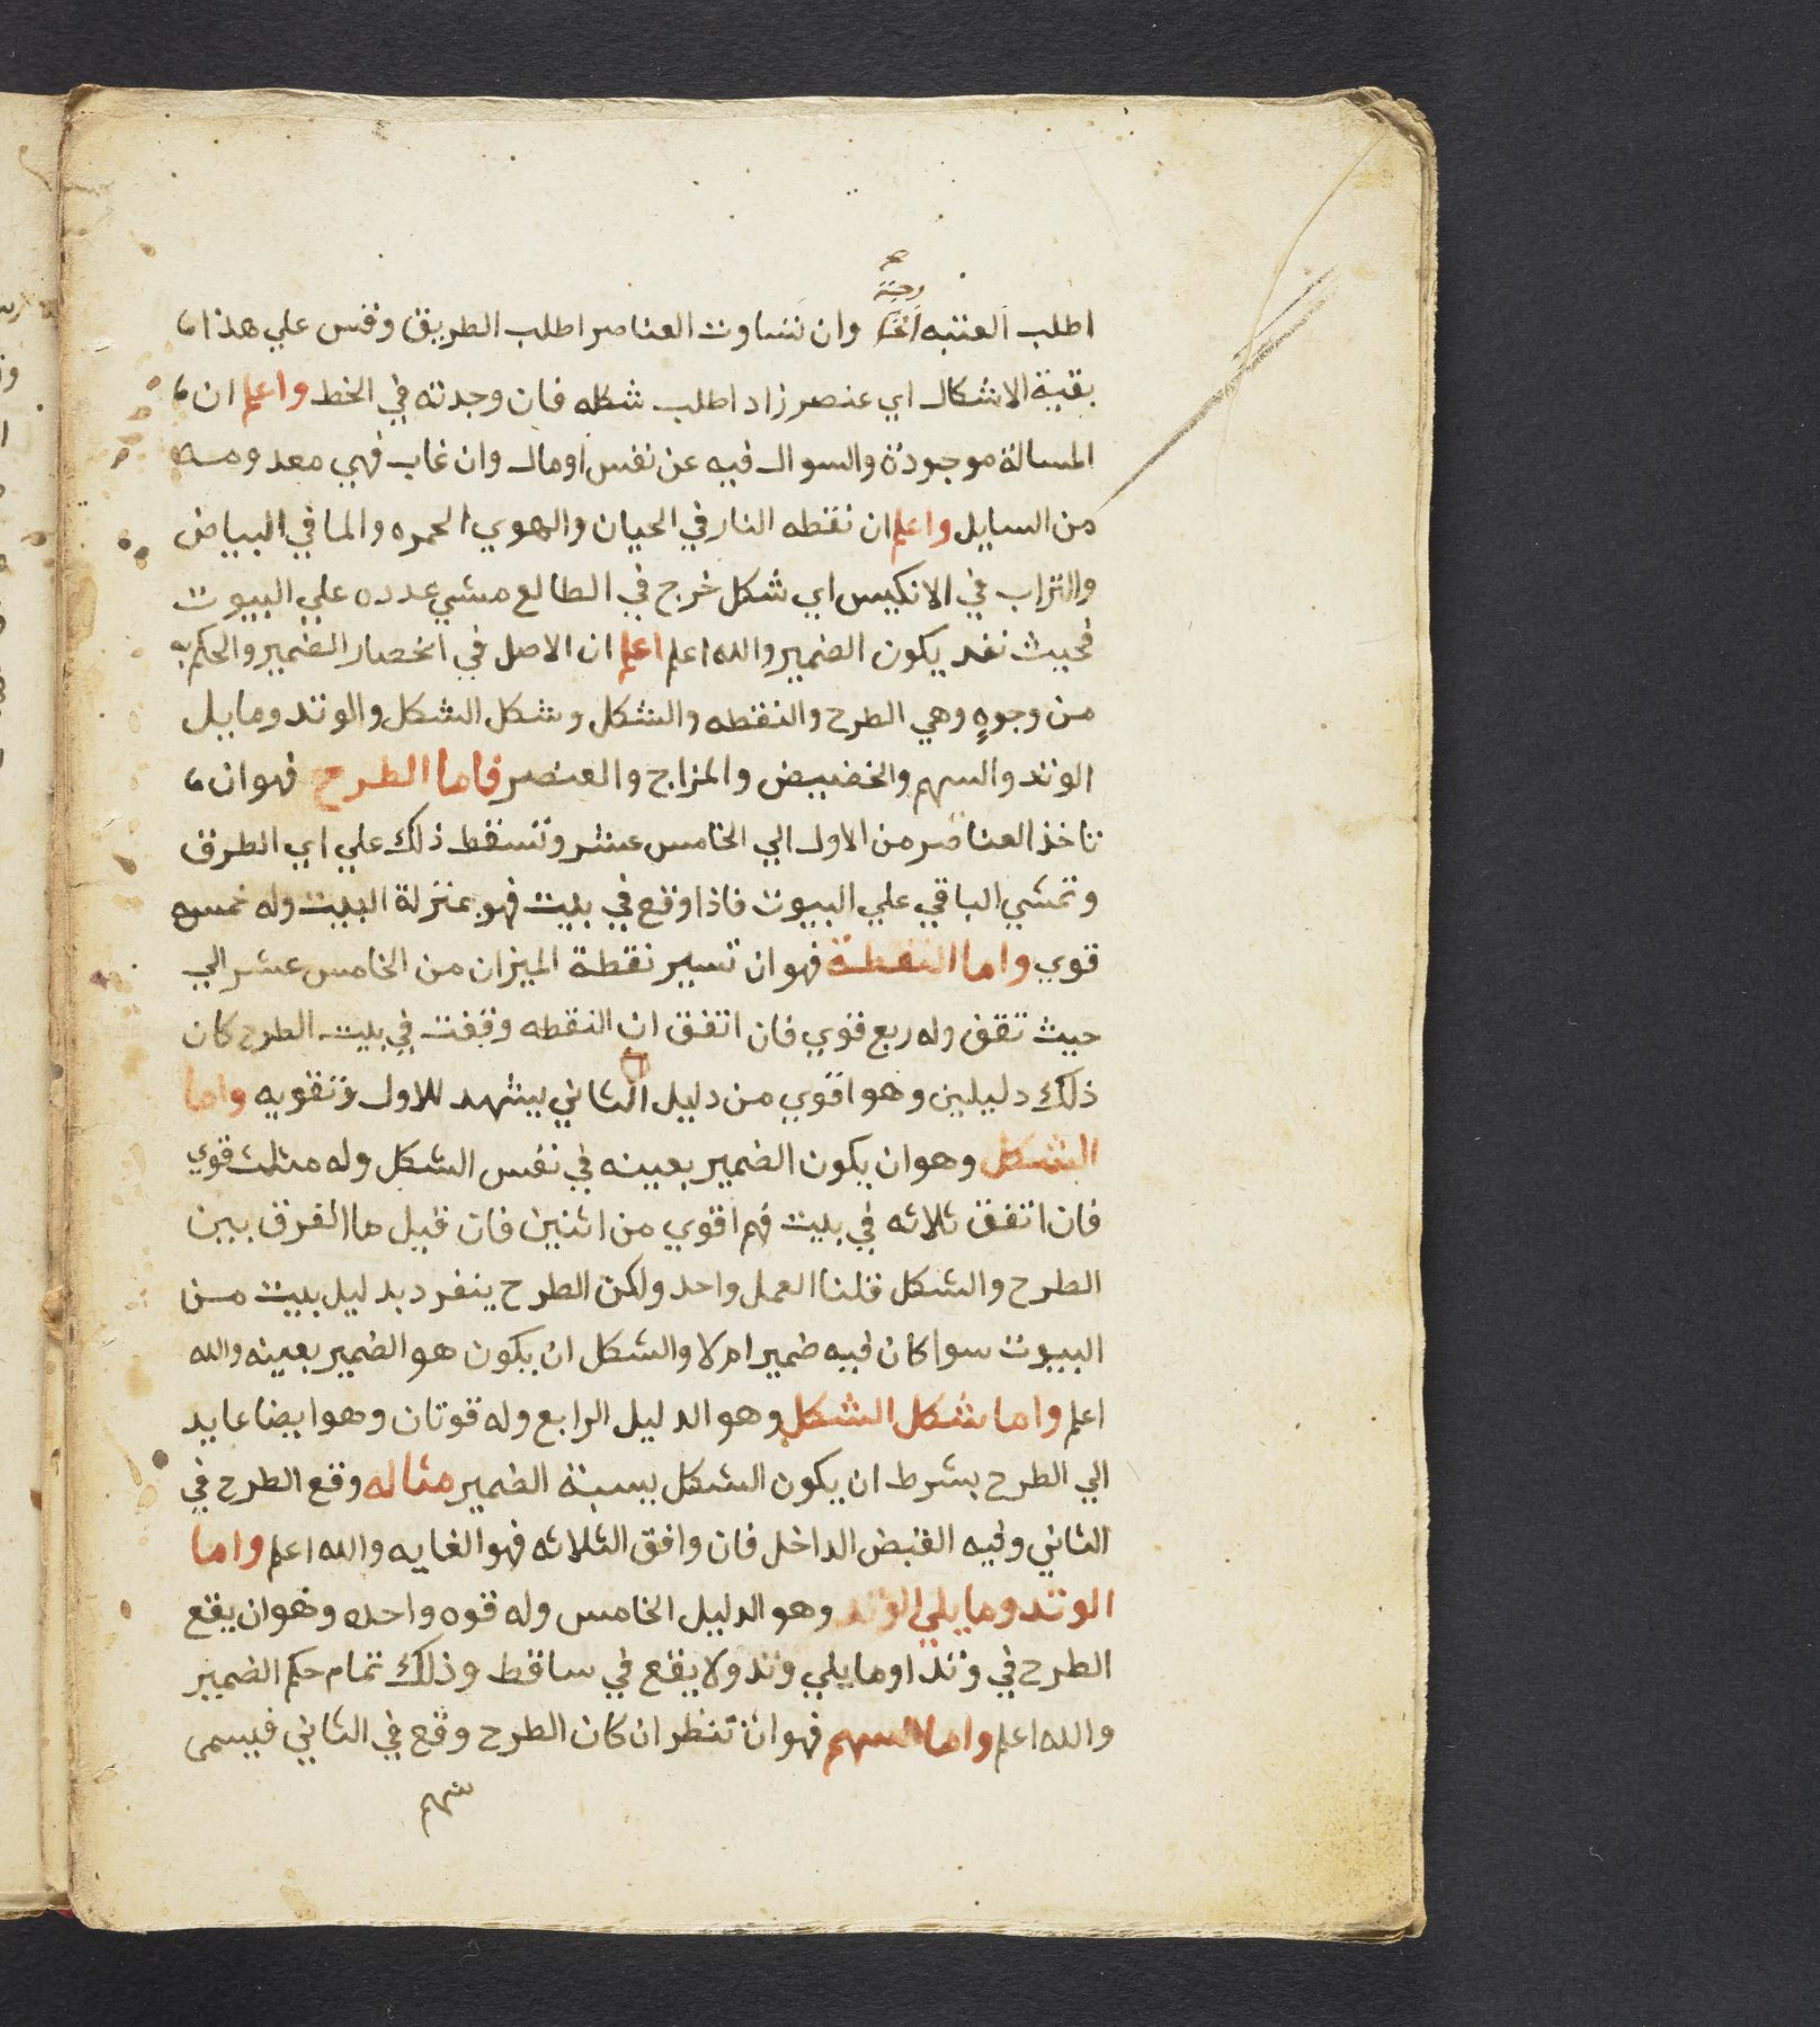 اطلب العتبه وان تساوت العناصر اطلب الطريق وقس علي هذا
بقية الاشكال اي عنصر زاد اطلب شكله فان وجدته في الخط واعلم ان
المسالة موجودة والسوال فيه عن نفس او مال وان غاب فهي معدومه
من السايل واعلم ان نقطه النار في الحيان والهوي الحمره والما في البياض
والتراب في الانكيس اي شكل خرج في الطالع مشي عدده علي البيوت
فحيث نفد يكون الضمير والله اعلم اعلم ان الاصل في انحصار الضمير والحكم به
من وجوهٍ وهي الطرح والنقطه والشكل وشكل الشكل والوتد وما يل
الوتد والسهم والخضيض والمزاج والعنصر فاما الطرح فهو ان
تاخذ العناصر من الاول الي الخامس عشر وتسقط ذلك علي اي الطرق
وتمشي الباقي علي البيوت فاذا وقع في بيت فهو بمنزلة البيت وله خمس
قوي واما النقطة فهو ان تسير نقطة الميزان من الخامس عشر الي
حيث تقف وله ربع قوي فان اتفق ان النقطه وقفت في بيت الطرح كان
ذلك دليلين وهو اقوي من دليل الثاني يشهد للاول وتقويه واما
الشكل وهو ان يكون الضمير بعينه في نفس الشكل وله مثلث قوي
فان اتفق ثلاثه في بيت فهم اقوي من اثنين فان قيل ما الفرق بين
الطرح والشكل قلنا العمل واحد ولكن الطرح ينفرد بدليل بيت من
البيوت سوا كان فيه ضمير ام لا والشكل ان يكون هو الضمير بعينه والله
اعلم واما شكل الشكل وهو الدليل الرابع وله قوتان وهو ايضا عايد
الي الطرح بشرط ان يكون الشكل بسبة الضمير مثاله وقع الطرح في
الثاني وفيه القبض الداخل فان وافق الثلاثه فهو الغايه والله اعلم واما
الوتد وما يلي الوتد وهو الدليل الخامس وله قوه واحده وهو ان يقع
الطرح في وتد او ما يلي وتد ولا يقع في ساقط وذلك تمام حكم الضمير
والله اعلم واما السهم فهو ان تنظر ان كان الطرح وقع في الثاني فيسمى
سهم